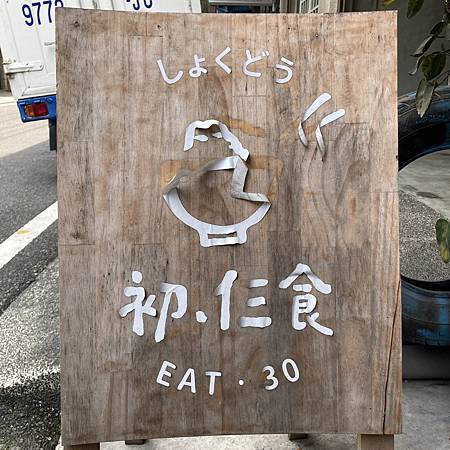 9773 · JU
しょくどう
初.仨食
EAT · 30